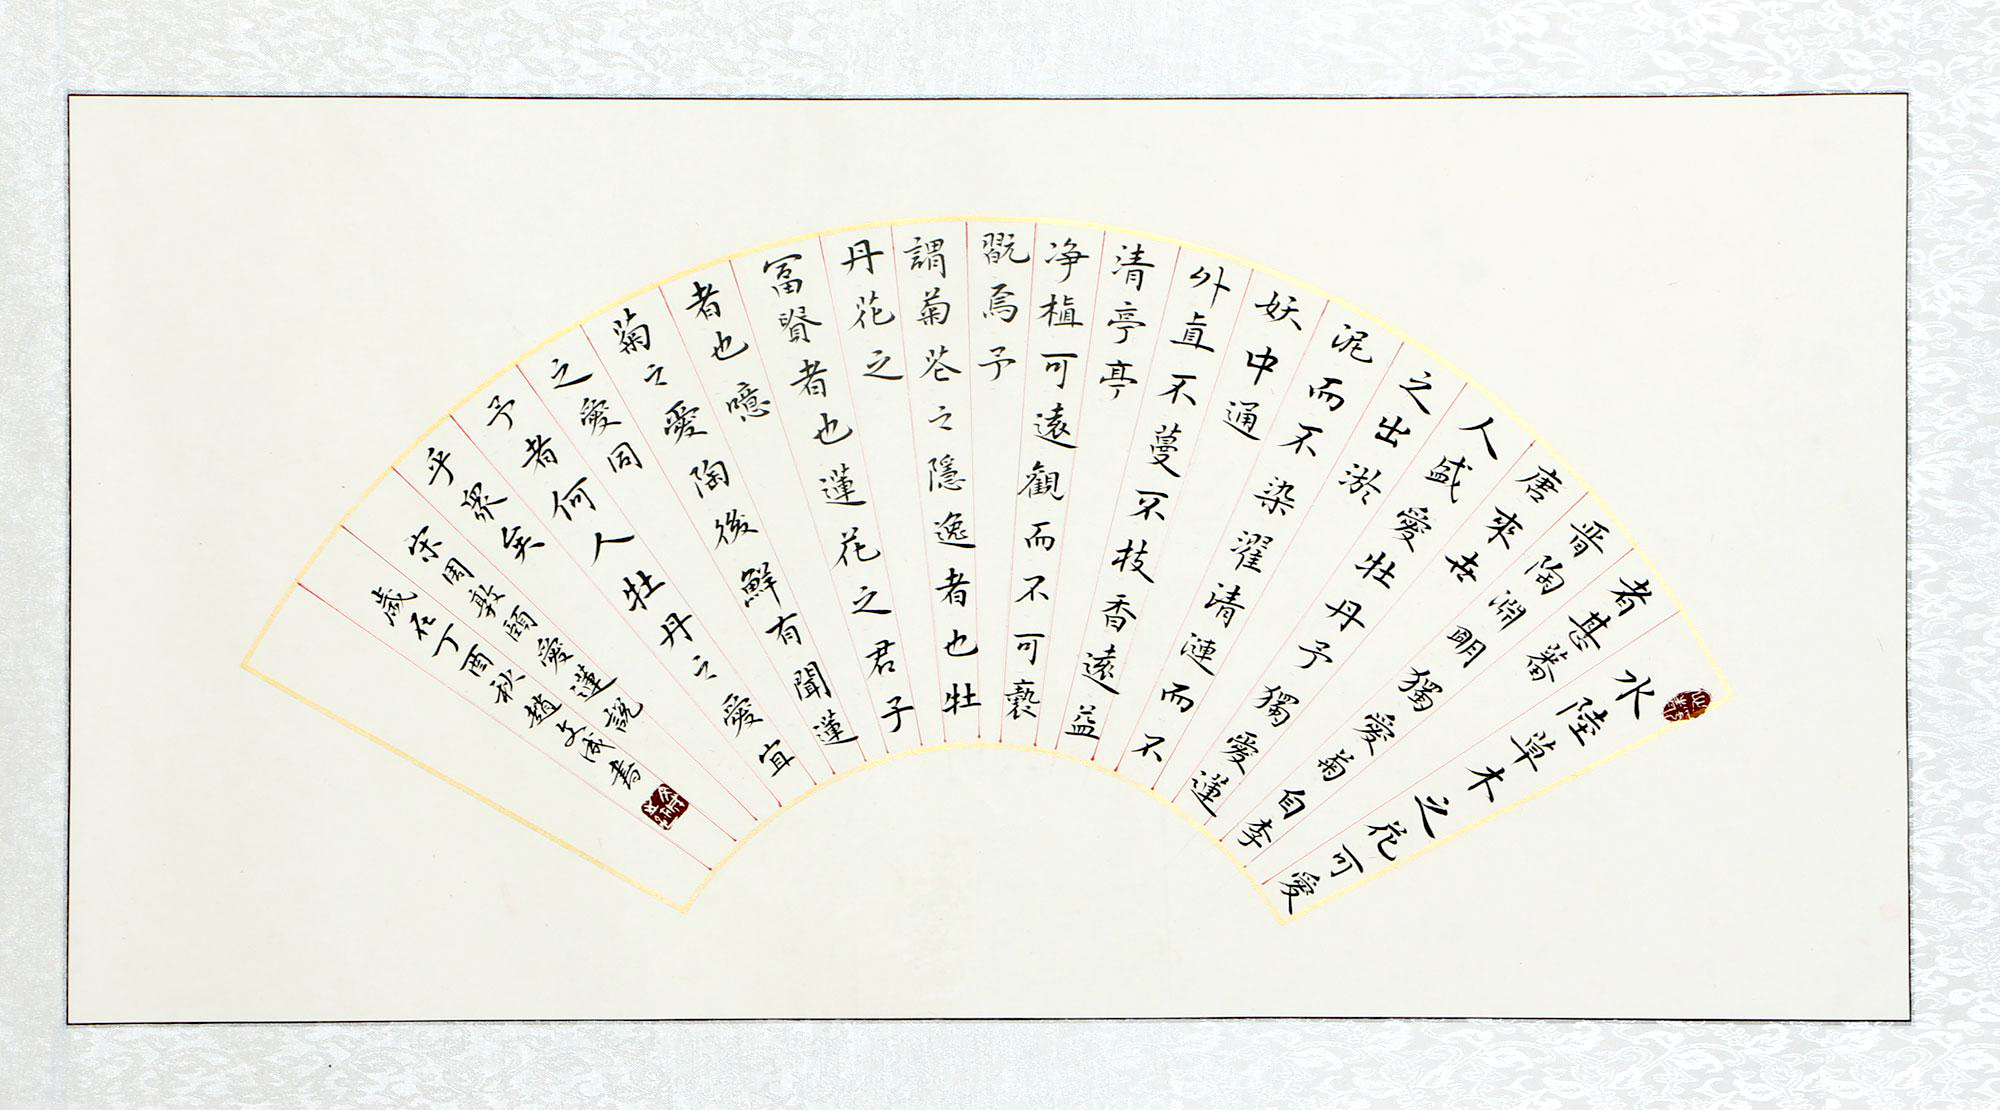 水陸草木之花可愛
者甚蕃
晋陶淵明獨愛菊自李
唐來世
人盛愛牡丹予獨愛蓮
之出淤
泥而不染濯清漣而不
妖中通
外直不蔓不枝香遠益
清亭亭
净植可遠觀而不可褻
翫焉予
謂菊花之隱逸者也牡
丹花之
冨賢者也蓮花之君子
者也噫
菊之愛陶後鮮有聞蓮
之愛同
予者何人牡丹之愛宜
乎衆矣
宋周敦頤愛蓮說
歲在丁酉秋趙文成書